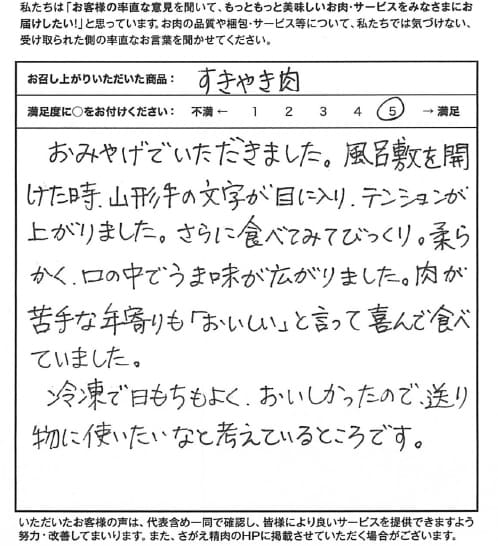 私たちは「お客様の率直な意見を聞いて、もっともっと美味しいお肉・サービスをみなさまにお
届けしたい!」と思っています。お肉の品質や梱包・サービス等について、私たちでは気づけない、
受け取られた側の率直なお言葉を聞かせてください。
お召し上がりいただいた商品： すきやき肉
満足度に○をお付けください： 不満 ← 1 2 3 4 5 → 満足
おみやげでいただきました。風呂敷を開
けた時、山形牛の文字が目に入り、テンションが
上がりました。さらに食べてみてびっくり。柔ら
かく、口の中でうま味が広がりました。肉が
苦手な年寄りも「おいしい」と言って喜んで食べ
ていました。
冷凍で日もちもよく、おいしかったので、送り
物に使いたいなと考えているところです。
いただいたお客様の声は、代表含め一同で確認し、皆様により良いサービスを提供できますよう
努力・改善してまいります。また、さがえ精肉のHPに掲載させていただく場合がございます。